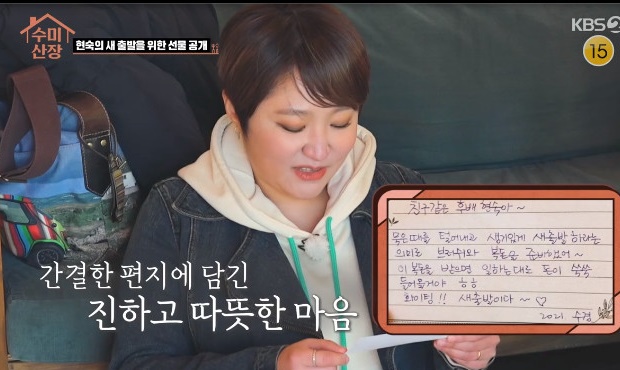 수미
산장
현숙의 새 출발을 위한 선물 공개
KBS 2
15
친구같은 후배 현숙아~
묵은때를 털어내고 생기있게 새출발하라는
의미로 브러쉬와 복돈을 준비했어~
이 복돈을 받으면 일하는대로 돈이 쑥쑥
들어올거야 ㅎㅎ
화이팅!! 새출발이다~♡
2021 수경
간결한 편지에 담긴
진하고 따뜻한 마음